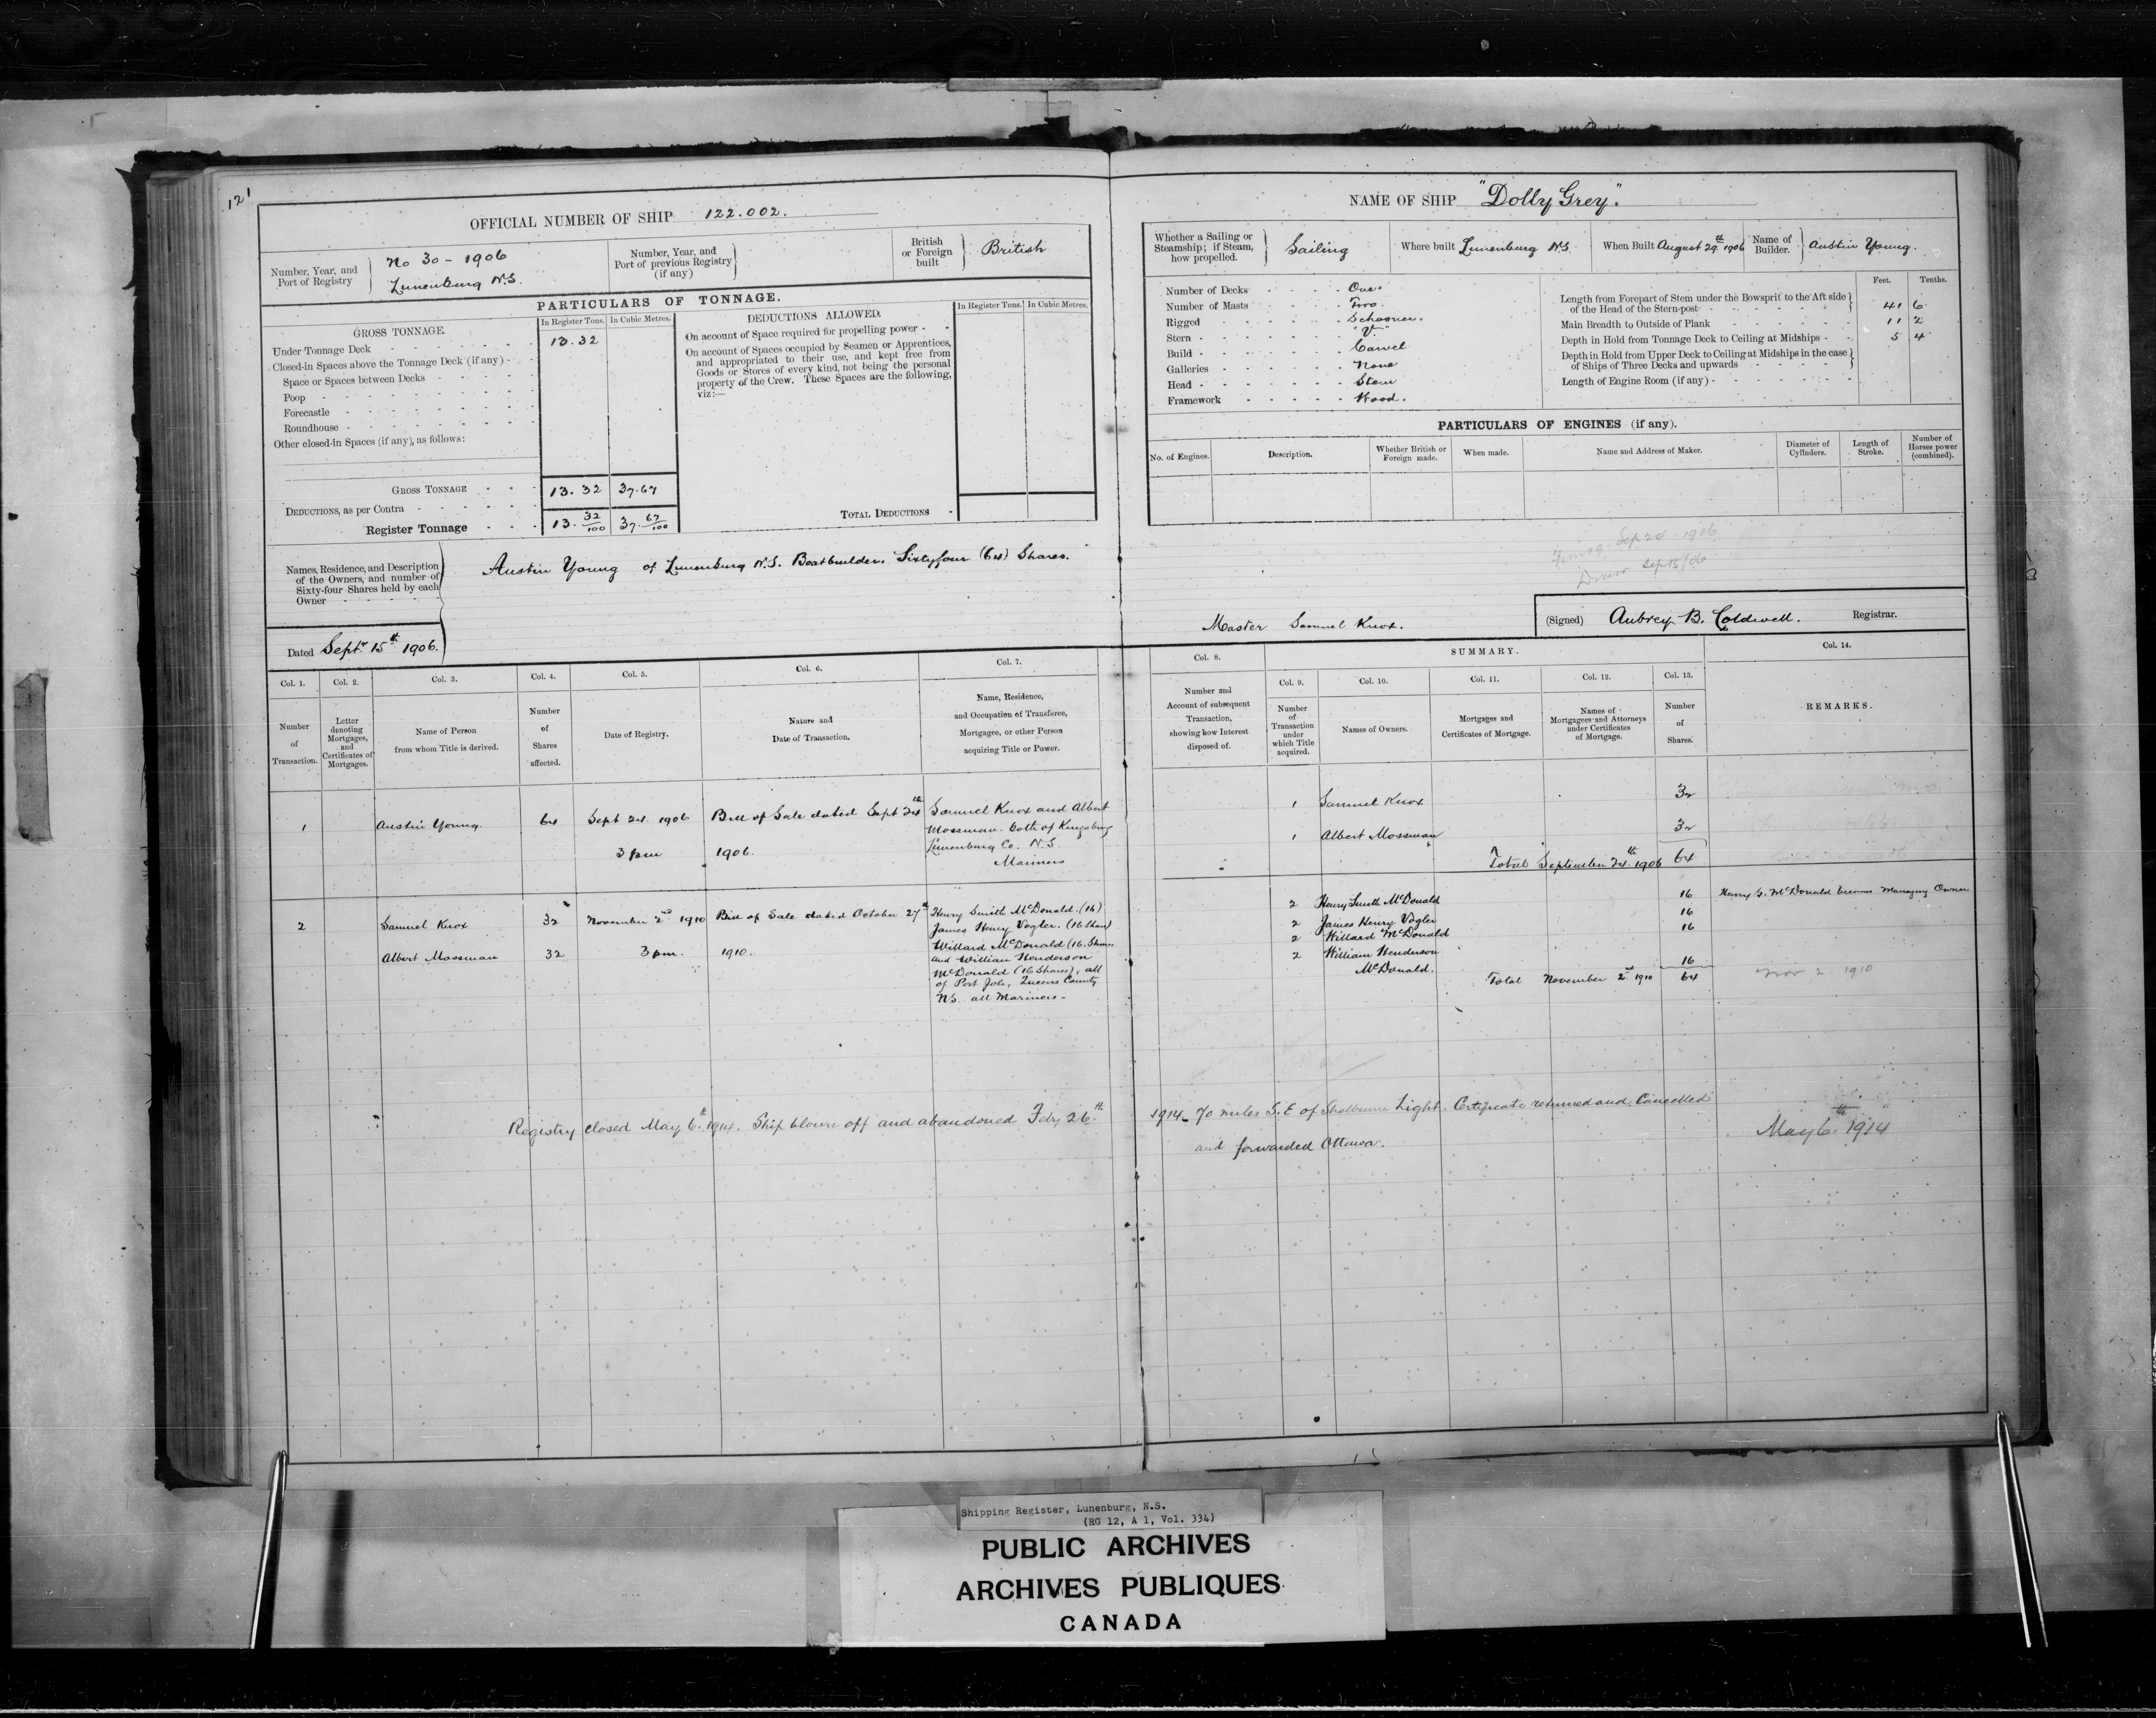 121
OFFICIAL NUMBER OF SHIP 122.002.
Number, Year, and Port of Registry
No 30 - 1906
Lunenburg N.S.
Number, Year, and Port of previous Registry (if any)
British or Foreign built
British
PARTICULARS OF TONNAGE.
GROSS TONNAGE.
In Register Tons. In Cubic Metres.
DEDUCTIONS ALLOWED.
In Register Tons. In Cubic Metres.
Under Tonnage Deck 13.32
Closed-in Spaces above the Tonnage Deck (if any) -
Space or Spaces between Decks
Poop
Forecastle
Roundhouse
Other closed-in Spaces (if any), as follows:
On account of Space required for propelling power
On account of Spaces occupied by Seamen or Apprentices,
and appropriated to their use, and kept free from
Goods or Stores of every kind, not being the personal
property of the Crew. These Spaces are the following,
viz:—
GROSS TONNAGE 13.32 37.67
DEDUCTIONS, as per Contra
Register Tonnage 13. 32/100 37. 67/100
TOTAL DEDUCTIONS
Names, Residence, and Description
of the Owners, and number of
Sixty-four Shares held by each
Owner
Austin Young of Lunenburg N.S. Boatbuilder. Sixtyfour (64) Shares.
Dated Septr 15th 1906.
NAME OF SHIP "Dolly Grey".
Whether a Sailing or
Steamship; if Steam,
how propelled.
Sailing
Where built Lunenburg N.S.
When Built August 29th 1906
Name of Builder. Austin Young.
Number of Decks One.
Number of Masts Two.
Rigged Schooner.
Stern "V"
Build Carvel
Galleries None
Head Stem
Framework Wood.
Feet. Tenths.
Length from Forepart of Stem under the Bowsprit to the Aft side
of the Head of the Stern-post 41 6
Main Breadth to Outside of Plank 11 2
Depth in Hold from Tonnage Deck to Ceiling at Midships 5 4
Depth in Hold from Upper Deck to Ceiling at Midships in the case
of Ships of Three Decks and upwards
Length of Engine Room (if any)
PARTICULARS OF ENGINES (if any).
No. of Engines. Description. Whether British or Foreign made. When made. Name and Address of Maker. Diameter of Cylinders. Length of Stroke. Number of Horses power (combined).
Sep 24 1906
Sep 15/06
Master Samuel Knox.
(Signed) Aubrey B. Coldwell. Registrar.
Col. 1. Col. 2. Col. 3. Col. 4. Col. 5. Col. 6. Col. 7.
Number of Transaction.
Letter denoting Mortgages, and Certificates of Mortgages.
Name of Person from whom Title is derived.
Number of Shares affected.
Date of Registry.
Nature and Date of Transaction.
Name, Residence, and Occupation of Transferee, Mortgagee, or other Person acquiring Title or Power.
1 Austin Young. 64 Sept 24. 1906 Bill of Sale dated Sept 24th
3 pm 1906.
Samuel Knox and Albert
Mossman. both of Kingsburg
Lunenburg Co. N.S.
Mariners
2 Samuel Knox 32 November 2nd 1910 Bill of Sale dated October 27th
Albert Mossman 32 3 pm. 1910.
Henry Smith McDonald. (16)
James Henry Vogler. (16 Shares)
Willard McDonald (16. Shares
and William Henderson
McDonald (16 Shares), all
of Port Joli, Queens County
N.S. all Mariners -
Col. 8. SUMMARY. Col. 14.
Col. 9. Col. 10. Col. 11. Col. 12. Col. 13.
Number and Account of subsequent Transaction, showing how Interest disposed of.
Number of Transaction under which Title acquired.
Names of Owners.
Mortgages and Certificates of Mortgage.
Names of Mortgagees and Attorneys under Certificates of Mortgage.
Number of Shares.
REMARKS.
1 Samuel Knox 32
1 Albert Mossman 32
Total September 24th 1906 64
2 Henry Smith McDonald 16 Henry S. McDonald becomes Managing Owner
2 James Henry Vogler 16
2 Willard McDonald 16
2 William Henderson
McDonald. 16
Total November 2nd 1910 64 Nov 2 1910
Registry closed May 6th 1914. Ship blown off and abandoned Feby 26th 1914 70 miles S.E of Shelburne Light. Certificate returned and Cancelled
and forwarded Ottawa.
May 6th 1914
Shipping Register, Lunenburg, N.S.
(RG 12, A 1, Vol. 334)
PUBLIC ARCHIVES
ARCHIVES PUBLIQUES
CANADA